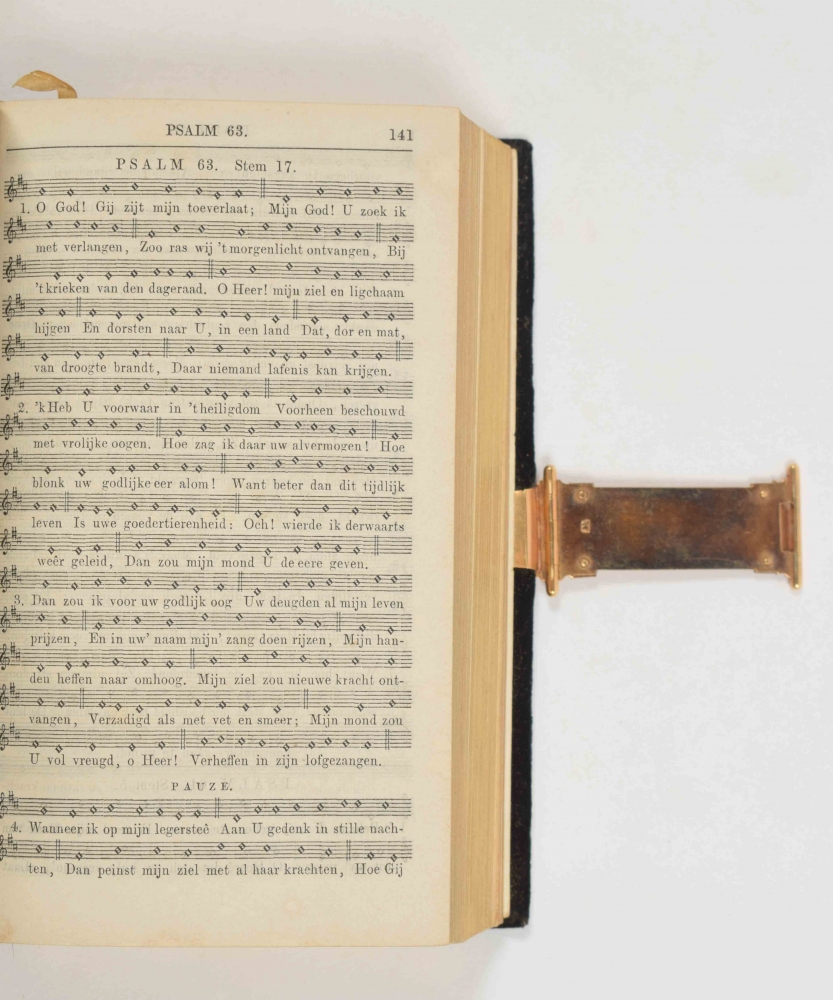 PSALM 63. 141
PSALM 63. Stem 17.
1. O God! Gij zijt mijn toeverlaat; Mijn God! U zoek ik
met verlangen, Zoo ras wij 't morgenlicht ontvangen, Bij
't krieken van den dageraad. O Heer! mijn ziel en ligchaam
hijgen En dorsten naar U, in een land Dat, dor en mat,
van droogte brandt, Daar niemand lafenis kan krijgen.
2. 'k Heb U voorwaar in 't heiligdom Voorheen beschouwd
met vrolijke oogen. Hoe zag ik daar uw alvermogen! Hoe
blonk uw godlijke eer alom! Want beter dan dit tijdlijk
leven Is uwe goedertierenheid: Och! wierde ik derwaarts
weêr geleid, Dan zou mijn mond U de eere geven.
3. Dan zou ik voor uw godlijk oog Uw deugden al mijn leven
prijzen, En in uw' naam mijn' zang doen rijzen, Mijn han-
den heffen naar omhoog. Mijn ziel zou nieuwe kracht ont-
vangen, Verzadigd als met vet en smeer; Mijn mond zou
U vol vreugd, o Heer! Verheffen in zijn lofgezangen.
PAUZE.
4. Wanneer ik op mijn legersteê Aan U gedenk in stille nach-
ten, Dan peinst mijn ziel met al haar krachten, Hoe Gij